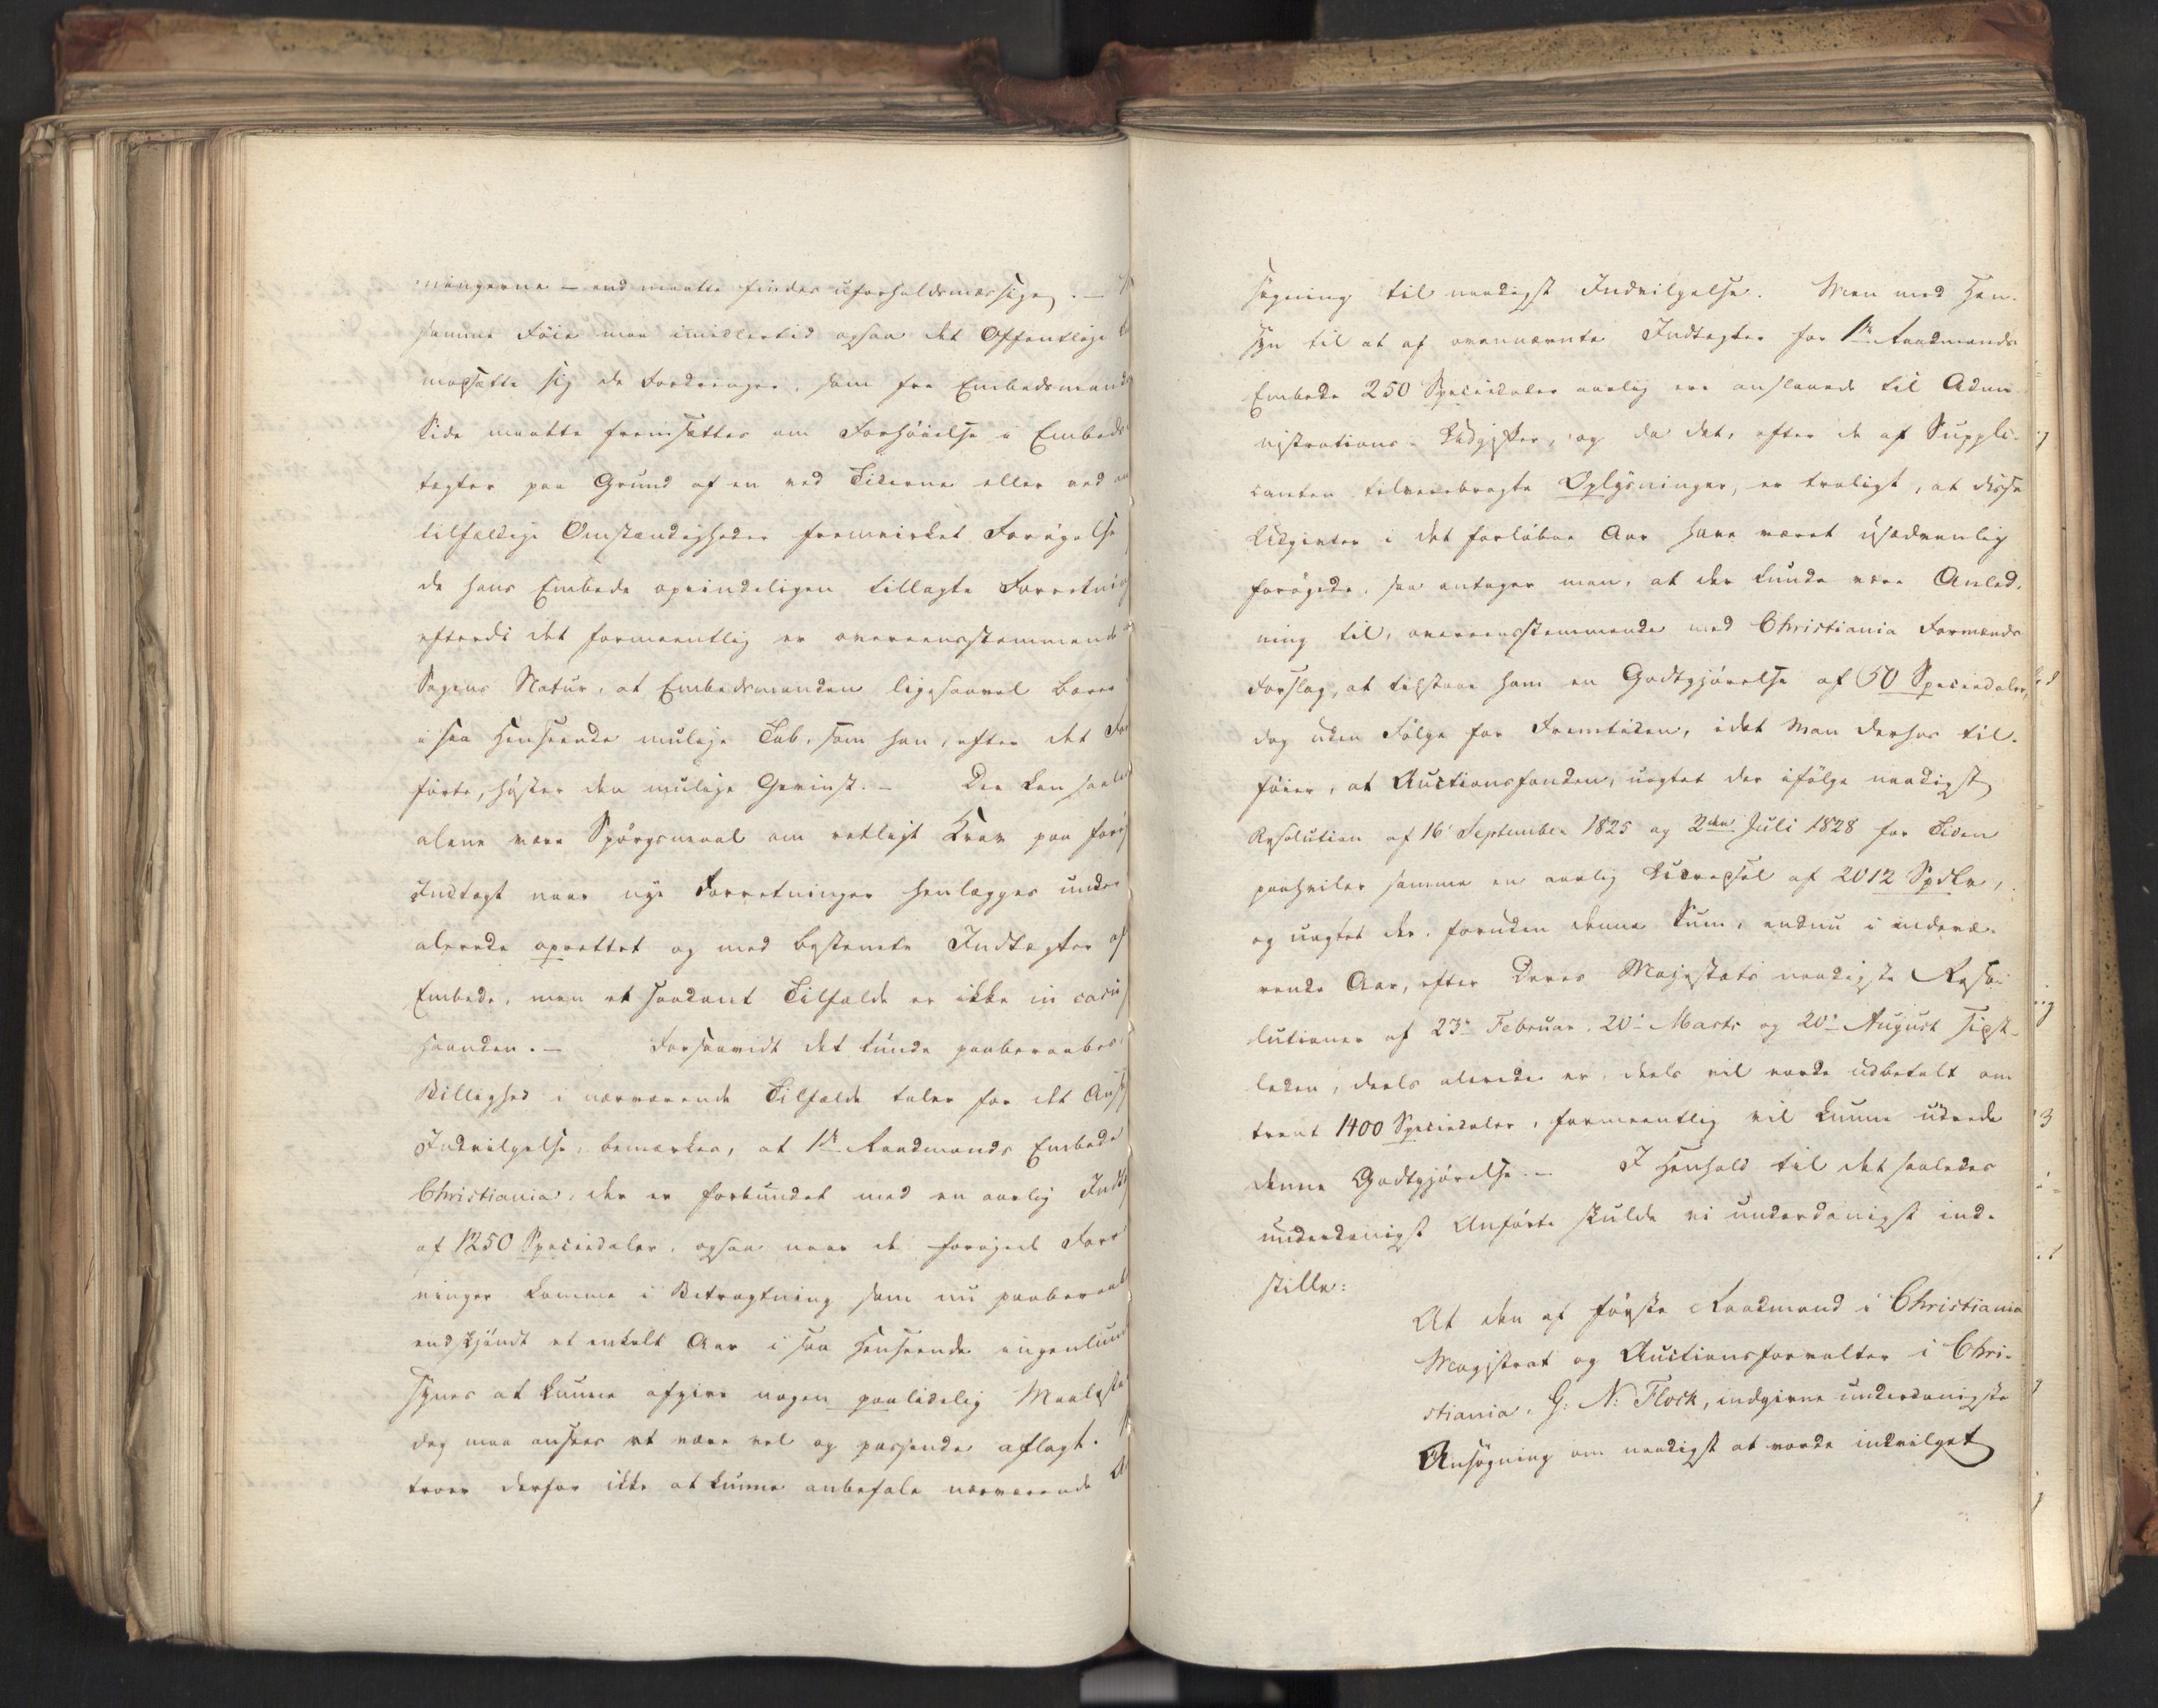 ningerne – end maatte findes uforholdsmæssige. –
samme Føie maa imidlertid ogsaa det Offentlige
modsætte sig de Fordringer, som fra Embedsmand
Side maatte fremsættes om Forhøielse i Embeds
tægter paa Grund af en ved Tiderne eller ved
tilfældige Omstændigheder fremvirket Forøgelse
de hans Embede oprindeligen tillagte Forretning
efterdi det formeentlig er overeensstemmende
Sagens Natur, at Embedsmanden ligesaavel bærer
i saa Henseende mulige Tab, som han, efter det
førte, høster den mulige Gevinst. – Der kan saale
alene være Spørgsmaal om retligt Krav paa forø
Indtægt naar nye Forretninger henlægges under
alerede oprettet og med bestemte Indtægter af
Embede, men et saadant Tilfælde er ikke in casu
Haanden. – Forsaavidt det kunde paaberaabes,
Billighed i nærværende Tilfælde taler for det Ans
Indvilgelse, bemærkes, at 1ste Raadmands Embede
Christiania, der er forbundet med en aarlig Indt
af 1250 Speciedaler, ogsaa naar de forøgede Forr
ninger komme i Betragtning som nu paaberaab
endskjøndt et enkelt Aar i saa Henseende ingenlund
synes at kunne afgive nogen paalidelig Maalesto
dog maa ansees at være vel og passende aflagt.
troer derfor ikke at kunne anbefale nærværende
søgning til naadigst Indvilgelse. Men med Hen-
syn til at af ovennævnte Indtægter for 1ste Raadmands
Embede 250 Speciedaler aarlig ere anslaaede til Admi-
nistrations-Udgifter, og da det, efter de af Suppli-
canten tilveiebragte Oplysninger, er troligt, at disse
Udgivter i det forløbne Aar have været usædvanlig
forøgede, saa antager man, at der kunde være Anled-
ning til, overeensstemmende med Christiania Formænds
Forslag, at tilstaae ham en Godtgjørelse af 50 Speciedaler,
dog uden Følge for Fremtiden, idet Man derhos til-
føier, at Auctionsfonden, uagtet der ifølge naadigst
Resolution af 16 September 1825 og 2den Juli 1828 for Tiden
paahviler samme en aarlig Udredsel af 2012 Spdlr,
og uagtet der, foruden denne Sum, endnu i indevæ-
rende Aar, efter Deres Majestæts naadigste Reso-
lutioner af 23de Februar, 20de Marts og 20de August sidst-
leden, deels alerede er, deels vil vorde udbetalt om
trent 1400 Speciedaler, formeentlig vil kunne udrede
denne Godtgjørelse. – I Henhold til det saaledes
underdanigst Anførte skulde vi underdanigst ind-
stille:
At den af første Raadmand i Christiania
Magistrat og Auctionsforvalter i Chri-
stiania, G: N: Flock, indgivne underdanigste
Ansøgning om naadigst at vorde indvilget